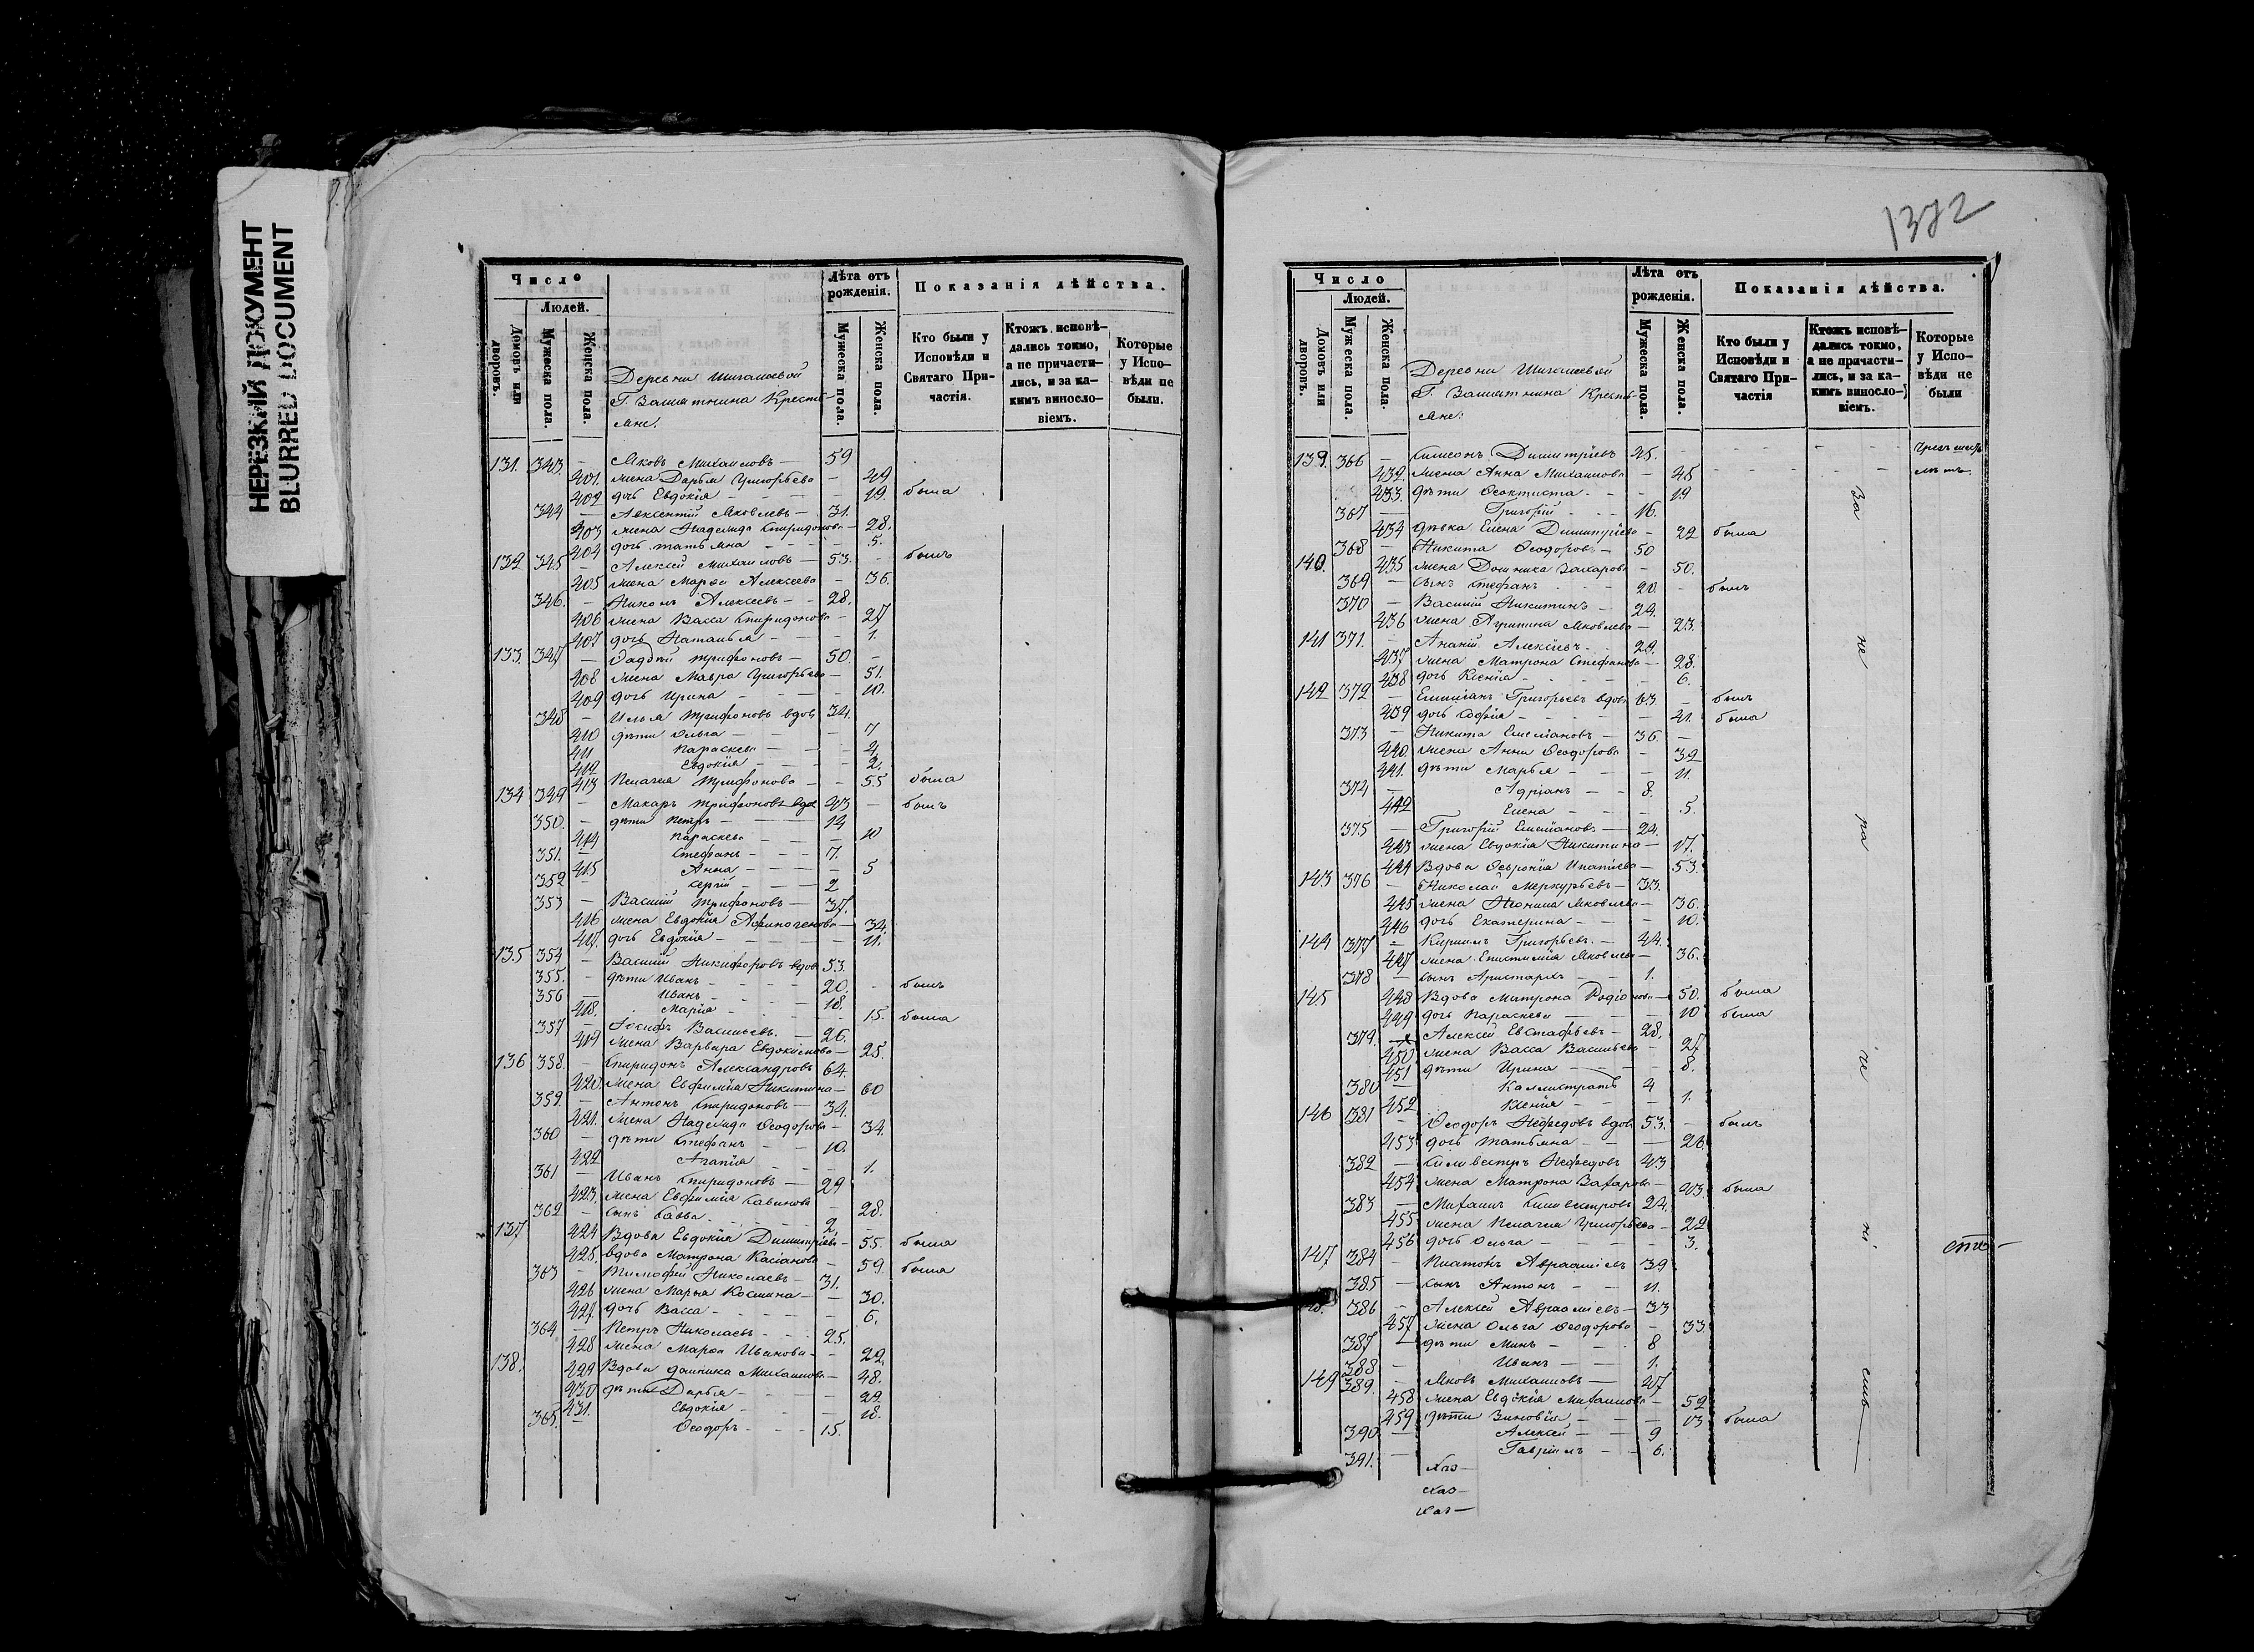 НЕРЕЗКИЙ ДОКУМЕНТ
BLURRED DOCUMENT
Число
Людей.
Домовъ или дворовъ.
Мужеска пола.
Женска пола.
Деревни
Крестьяне.
Лѣта отъ рожденія.
Мужеска пола.
Женска пола.
Показанія дѣйства.
Кто были у Исповѣди и Святаго Причастія.
Ктожъ исповѣдались токмо, а не причастились, и за какимъ винословіемъ.
Которые у Исповѣди не были.
131. 343. — Яковъ Михаиловъ — 59
401. жена Дарья Григорьева — 49
402 дочь Евдокія — 19. была
344 — Авксентій Яковлевъ — 31.
403 жена Надежда Спиридонова — 28.
404 дочь Татьяна — 5.
132. 345 — Алексей Михаиловъ — 53. — былъ
405 жена Марѳа Алексеева — 36.
346. — Никонъ Алексеевъ — 28.
406 жена Васса Спиридонова — 27
407 дочь Наталья — 1.
133. 347 — Фаддей Трифоновъ — 50. —
408 жена Мавра Григорьева — 51.
409 дочь Ирина — 10.
348 — Илья Трифоновъ вдов 34.
410 дѣти Ольга — 7
411 Параскева — 4.
412 Евдокія — 2.
413 Пелагея Трифонова — 55 была
134 349 — Макаръ Трифоновъ вдов 43 — былъ
350. — дѣти Петръ — 14
414 Параскева — 10
351. — Стефанъ — 7.
415 Анна — 5
352 — Сергій — 2
353 — Василій Трифоновъ — 37.
416 жена Евдокія Афиногенова — 34.
417. дочь Евдокія — 11.
135 354 — Василій Никифоровъ вдов 53.
355. — дѣти Иванъ — 20. — былъ
356 — Иванъ — 18.
418. Марія — 15. была
357 — Іосифъ Васильевъ. — 26.
419 жена Варвара Евдокимова — 25.
136 358. — Спиридонъ Александровъ 64.
420. жена Евфимія Никитина — 60
359. — Антонъ Спиридоновъ — 34.
421. жена Надежда Ѳеодорова — 34.
360 — дѣти Стефанъ — 10.
422 Агапія — 1.
361 — Иванъ Спиридоновъ — 29
423. жена Евфимія Савинова — 28.
362 — сынъ Савва. — 2.
137 424 Вдова Евдокія Димитріева — 55. была
425. вдова Матрона Касіанова — 59. была
363 — Тимофей Николаевъ — 31.
426 жена Марья Космина — 30.
427. дочь Васса — 6.
364 — Петръ Николаевъ — 25.
428 жена Марѳа Иванова — 22.
138. 429 Вдова Домника Михаилова — 48.
430 дѣти Дарья — 22.
431. Евдокія — 18.
365. — Ѳеодоръ — 15.
1372
Число
Людей.
Домовъ или дворовъ.
Мужеска пола.
Женска пола.
Деревни
Крестьяне.
Лѣта отъ рожденія.
Мужеска пола.
Женска пола.
Показанія дѣйства.
Кто были у Исповѣди и Святаго Причастія
Ктожъ исповѣдались токмо, а не причастились, и за какимъ винословіемъ.
Которые у Исповѣди не были
139. 366 — Симеонъ Димитріевъ 45. —
432. жена Анна Михаилова — 45
433. дѣти Ѳеоктиста — 19
367 — Григорій — 16.
434 дѣвка Елена Димитріева — 22 была
140. 368 — Никита Ѳеодоровъ — 50
435 жена Домника Захарова — 50.
369 — сынъ Стефанъ — 20. — былъ
370 — Василій Никитинъ — 24.
436 жена Агрипина Яковлева — 23.
141 371. — Ананій Алексѣевъ — 29.
437 жена Матрона Стефанова — 28.
438 дочь Ксенія — 6.
142 372 — Емиліанъ Григорьевъ вдов 63. — былъ
439 дочь Софія — 41. была
373 — Никита Емеліановъ — 36. —
440 жена Анна Ѳеодорова — 32
441. дѣти Марья — 11.
374 — Адріанъ — 8.
442 Елена — 5.
375 — Григорій Емеліановъ — 24.
443 жена Евдокія Никитина — 17.
444 Вдова Ѳевронія Ипатіева — 53.
143 376 — Николай Меркурьевъ — 33.
445 жена Неонила Яковлева — 36.
446 дочь Екатерина — 10.
144 377 — Кириллъ Григорьевъ. — 44.
447 жена Епистимія Яковлева — 36.
378 — сынъ Аристархъ — 1.
145 448 Вдова Матрона Родіонова — 50. была
449 дочь Параскева — 10 была
379. — Алексей Евстафьевъ — 28.
450 жена Васса Васильева — 27
451 дѣти Ирина — 8.
380 — Каллистратъ 4
452 Ксенія — 1.
146 381 — Ѳеодоръ Нефедовъ вдов 53. — былъ
453 дочь Татьяна — 26.
382 — Сильвестръ Нефедовъ 43
454 жена Матрона Захарова — 43. была
383 — Михаилъ Сильвестровъ 24.
455 жена Пелагея Григорьева — 22
456 дочь Ольга — 3.
147 384 — Платонъ Авраамъевъ 39
385 — сынъ Антонъ — 11.
386 — Алексей Авраамъевъ — 33
457 жена Ольга Ѳеодорова — 33.
387 — дѣти Минъ — 8
388 — Иванъ — 1.
149 389. — Яковъ Михаиловъ — 47
458 жена Евдокія Михаилова — 52
459 дѣти Зиновія — 13 была
390 — Алексей — 9
391. — Гавріилъ — 6.